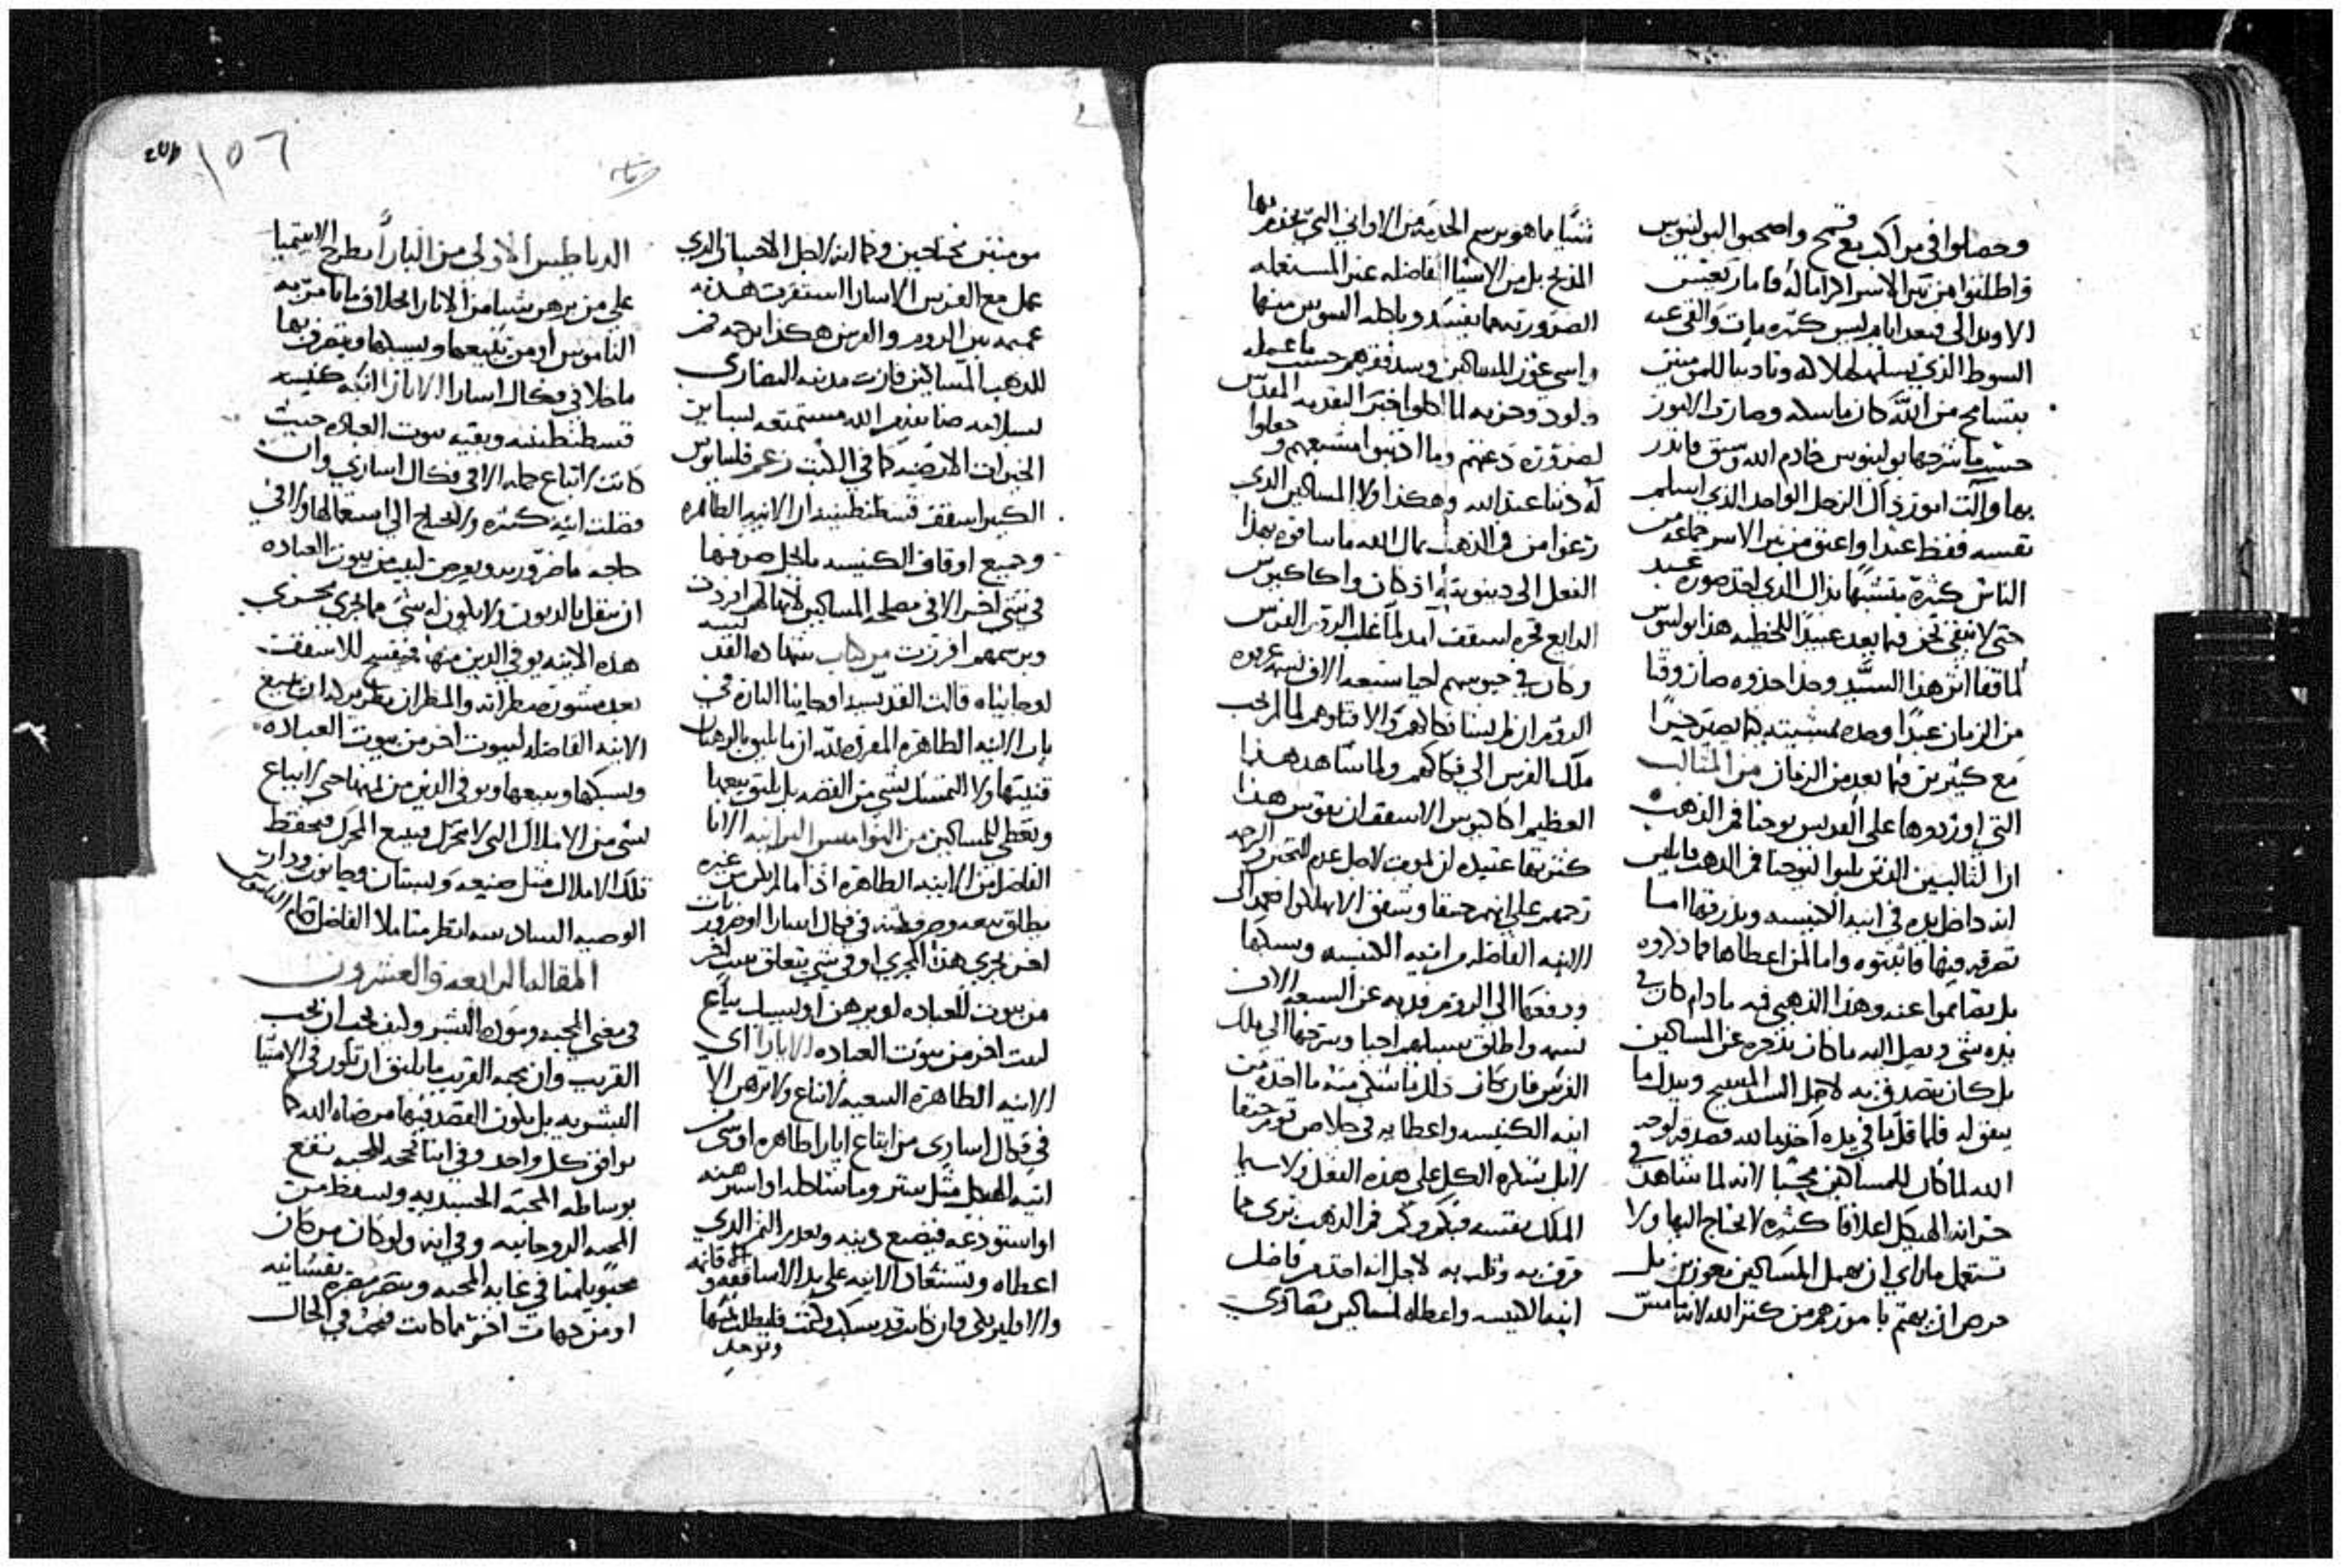 وحصلوا في مراكب مع قمح واصحبوا البولينوس
واطلقوا من نير الاسر اكراما له فاما ريغيس
الاويدالي فبعد ايام ليس كثيره مات والقي عنه
السوط الذي تسلمه لهلاك وتاديبا للمومنين
بتسامح من الله كان ماسكه وصارت الامور
حسب ما شرحها بولينوس خادم الله وسبق فانذر
بها والت امور ذاك الرجل الواحد الذي اسلم
نفسه فقط عبدا واعتق من نير الاسر جماعه من
الناس كثيرة متشبها بذاك الذي اخذ صورة عبد
حتى لا نبقى نحن فيما بعد عبيدا للخطيه هذا بولينوس
لما قفا اثر هذا السيد وحدا حذوه صار وقتا
من الزمان عبدا وحده بمشيته كيما يصير حرا
مع كثيرين فيما بعد من الزمان من المثالب
التي اوردوها على القديس يوحنا فم الذهب
ان الثالبين الذين ثلبوا ليوحنا فم الذهب قايلين
انه داخل يده في انية الكنيسه وبذرقها اما
تفرقه فيها فاثبتوه واما لمن اعطاها فما ذكروه
بل تصامموا عنه وهذا الذهبي فمه مادام كان في
يده شي ويصل اليه ما كان يذخره عن المساكين
بل كان يتصدق به لاجل السيد المسيح ويبدل ما
يتفق له فلما قل ما في يده اخذ مال الله فصرفه لوجه
الله لما كان للمساكين محبا لانه لما شاهد في
خزانه الهيكل اعلاقا كثيره لا يحتاج اليها ولا
تستعمل ما راى ان يهمل المساكين معوزين بل
حرص ان يهتم بامورهم من كنز الله لانه ما مس
شيا ما هو برسم الخدمه من الاواني التي يخدم بها
المذبح بل من الاشيا الفاضله عن المستعمله
الضروريه مما يفسد وياكله السوس منها
واسي عوز المساكين وسد فقرهم حسب ما عمله
داود وحزبه لما اكلوا خبز التقدمه المقدس
لضرورة دعتهم وما اذنبوا مشبعهم وجعلوا
له دينا عند الله وهكذا اولا المساكين الذي
رعوا من فم الذهب مال الله ما ساقوه بهذا
الفعل الى دينونة اذ كان واكاكيوس
الرابع ذكره اسقف امد لما غلب الروم الفرس
وكان في حبوسهم احيا سبعه الاف نسمه
الروم ان لم يشا فكاكهم ولا اقتاتهم لما لم يحب
ملك الفرس الى فكاكهم ولما شاهد هذا
العظيم اكاكيوس الاسقف ان نفوس هذا
تقديرها عتيده ان تموت لاجل عدم التحنن والرحمه
ترحم عليهم حنقا وشفق الا يهلكوا اخذ تلك
الانيه الفاضله من انيه الكنيسه وسبكها
ودفعها الى الروم فديه عن السبعه الاف
نسمه واطلق سبيلهم احيا وسرحها الى ملك
الفرس فان كان ذلك فاشكي منه ما اخذه من
انيه الكنيسه واعطا به في خلاص قوم حنفا
لا بل شكره الكل على هذه الفعل ولا سيما
الملك نفسه فبكم وكم فم الذهب ترى مما
قرف به وثلب به لاجل انه اخذ من فاضل
انيه الكنيسه واعطاه لمساكين نصارى
مومنين محتاجين وكما انه لاجل الاحسان الذي
عمل مع الفرس الاسارا استقرت هدنه
عميمه بين الروم والفرس هكذا برحمه فم
الذهب المساكين فازت مدينه النصارى
بسلامه صنايع الله مستمتعه لسايرن
الخيرات الارضيه كما في الكتب زعم فلبيانوس
الكبير اسقف قسطنطينيه ان الانيه الطاهره
وجميع اوقاف الكنيسه ما يحل صرفها
في شي اخر الا في مصلحه المساكين لانها لهم افرزت
وبرسمهم افرزت من كتاب شهاده القديسه
اوجانياه قالت القديسه اوجانيا البارة في
باب الانيه الطاهره المعرضه له ان ما يليق بالرهبان
قنيتها ولا التمسك بشي من الفضه بل يليق بيعها
وتعطى للمساكين من النواميس البرانيه الانا
الفاضل من الانيه الطاهره اذا ما لم يكن غيره
يطلق بيعه وصرف ثمنه في فكاك اسارا او ضرورات
اخر تجري هذا المجرى او في شي يتعلق ببيت اخر
من بيوت العباده او يرهن او يسبك يباع
لبيت اخر من بيوت العباده الابارا اي
الانيه الطاهره السعيه لا تباع ولا ترهن الا
في فكاك اسارى من ابتاع ابارا طاهره او شي من
انيه الهيكل مثل ستر وما شاكله او استرهنه
او استودعه فيضيع دينه ويعدم الثمن الذي
اعطاه وتستعاد الانيه على يد الاساقفه والاقانمه
والاقليريكي وان كانت قد سبكت وكتت فليطلب ثمنها
وتوخذ
الدياطيس الاولى من الباب يطرح الايتيميا
على من يرهن شيا من الانارا بخلاف ما يامر به
الناموس او من يبيعها ويسبكها ويتصرف بها
ما خلا في فكاك اسارا الا بارا انيه كنيسه
قسطنطينيه وبقيه بيوت العباده حيث
كانت لا تباع جمله الا في فكاك اسارى وان
فضلت انيه كثيره ولا يحتاج الى استعمالها ولا في
حاجه ما ضروريه ويعرض لبيت من بيوت العباده
ان يثقل بالديون ولا يكون له شي مما يجري مجرى
هذه الانيه يوفي الدين منها فيفسح للاسقف
بعد مشوره مطرانه والمطران بطريركه ان تبيع
الانيه الفاضله لبيوت اخر من بيوت العباده
ويسبكها ويبيعها ويوفي الدين من ثمنها حتى لا يباع
شي من الاملاك التي لا تحرك فيبيع المحرك فيحفظ
تلك الاملاك مثل ضيعه وبستان وحانوت ودار
الوصيه السادسه انظر متاملا الفاضل قدام الناموس
المقاله الرابعه والعشرون
في معنى المحبه ومودة البشر وكيف يجب ان نحب
القريب وان محبه القريب ما يليق ان تكون في الاشيا
البشريه بل يكون القصد فيها مرضاه الله كما
يوافق كل واحد وفي اننا نحجه المحبه نقع
بوساطه المحبه الجسديه ونسقط من
المحبه الروحانيه وفي انه ولو كان من كان
محبوبا منا في غايه المحبه ويضر مضره نفسانيه
او من جهات اخر مما كانت فيجب في الحال
١٥٦